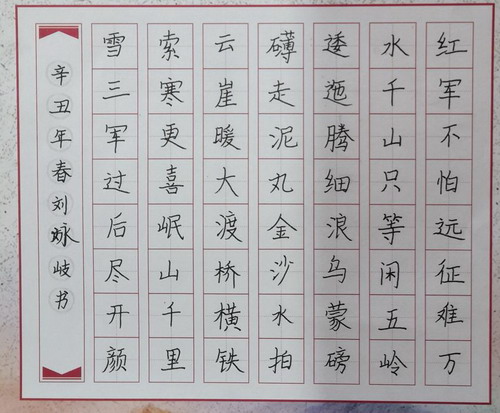 红军不怕远征难万
水千山只等闲五岭
逶迤腾细浪乌蒙磅
礴走泥丸金沙水拍
云崖暖大渡桥横铁
索寒更喜岷山千里
雪三军过后尽开颜
辛丑年春刘咏岐书